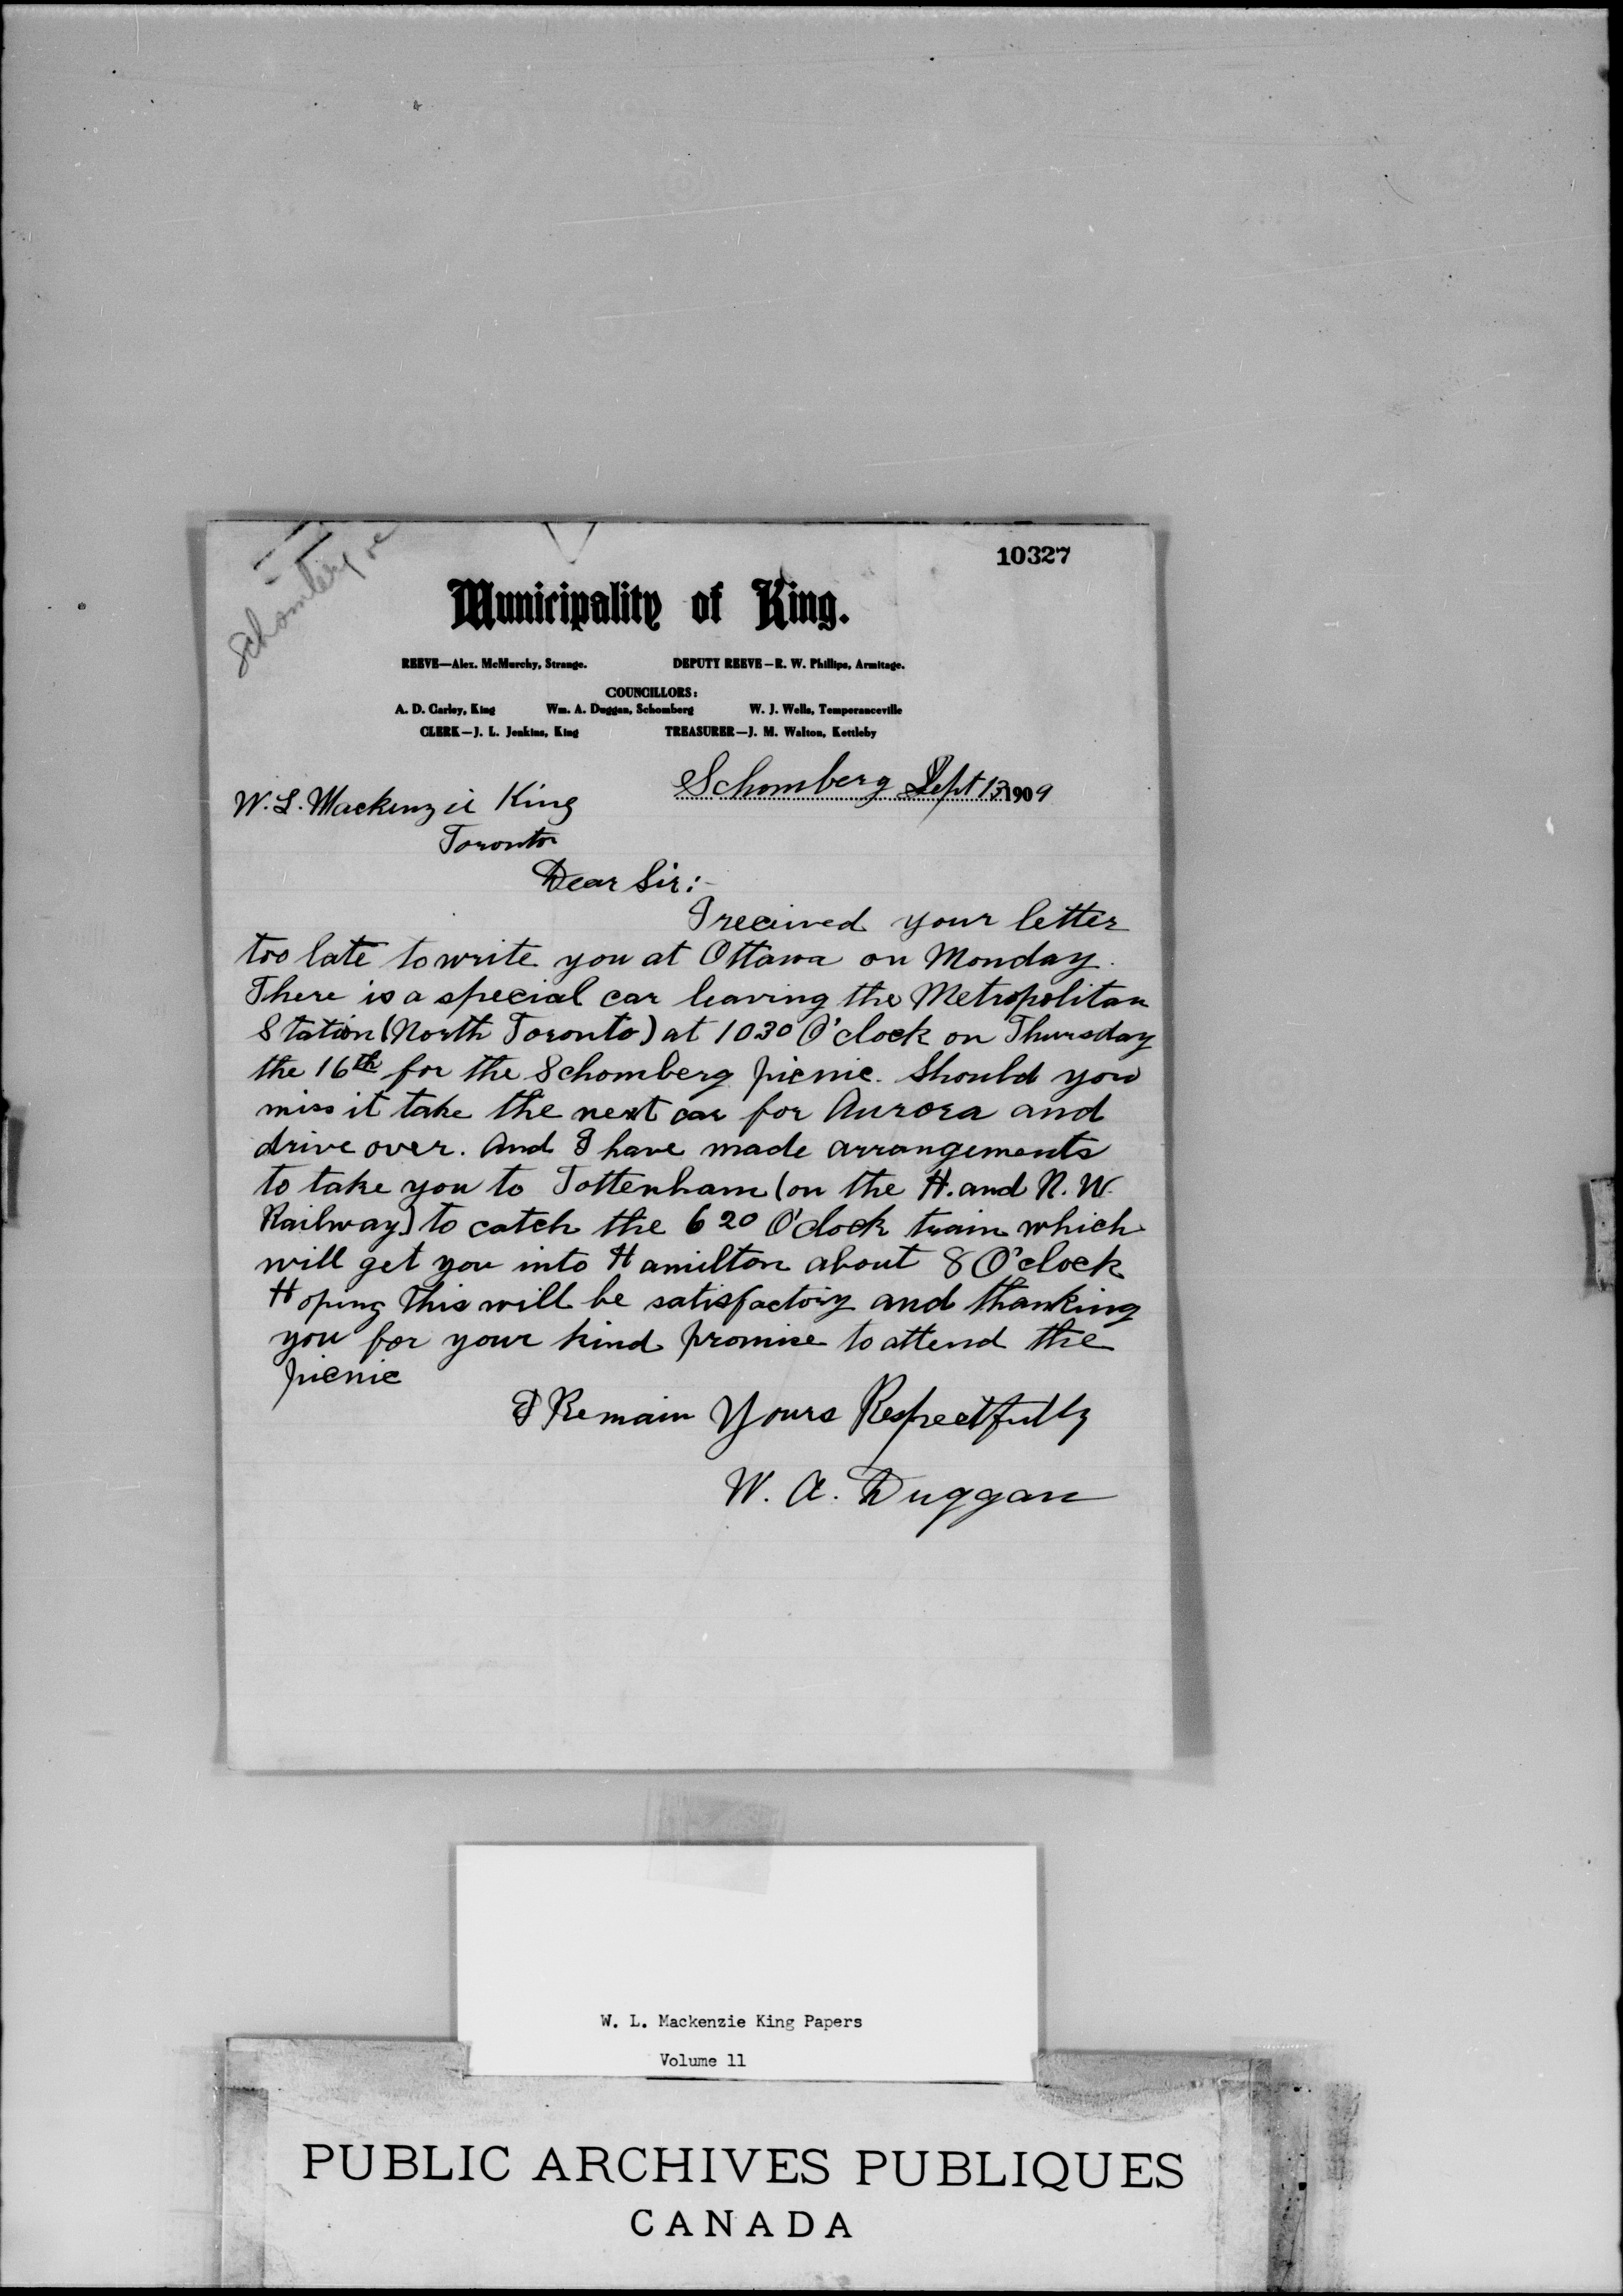 10327
Schomberg re
Municipality of King.
REEVE—Alex. McMurchy, Strange. DEPUTY REEVE—R. W. Phillips, Armitage.
COUNCILLORS:
A. D. Carley, King Wm. A. Duggan, Schomberg W. J. Wells, Temperanceville
CLERK—J. L. Jenkins, King TREASURER—J. M. Walton, Kettleby
Schomberg Sept 13 1909
W. L. Mackenzie King
Toronto
Dear Sir:-
I received your letter
too late to write you at Ottawa on Monday.
There is a special car leaving the Metropolitan
Station (North Toronto) at 10 30 O'clock on Thursday
the 16th for the Schomberg picnic. Should you
miss it take the next car for Aurora and
drive over. And I have made arrangements
to take you to Tottenham (on the H. and N. W.
Railway) to catch the 6 20 O'clock train which
will get you into Hamilton about 8 O'clock
Hoping this will be satisfactory and thanking
you for your kind promise to attend the
picnic
I Remain Yours Respectfully
W. A. Duggan
W. L. Mackenzie King Papers
Volume 11
PUBLIC ARCHIVES PUBLIQUES
CANADA